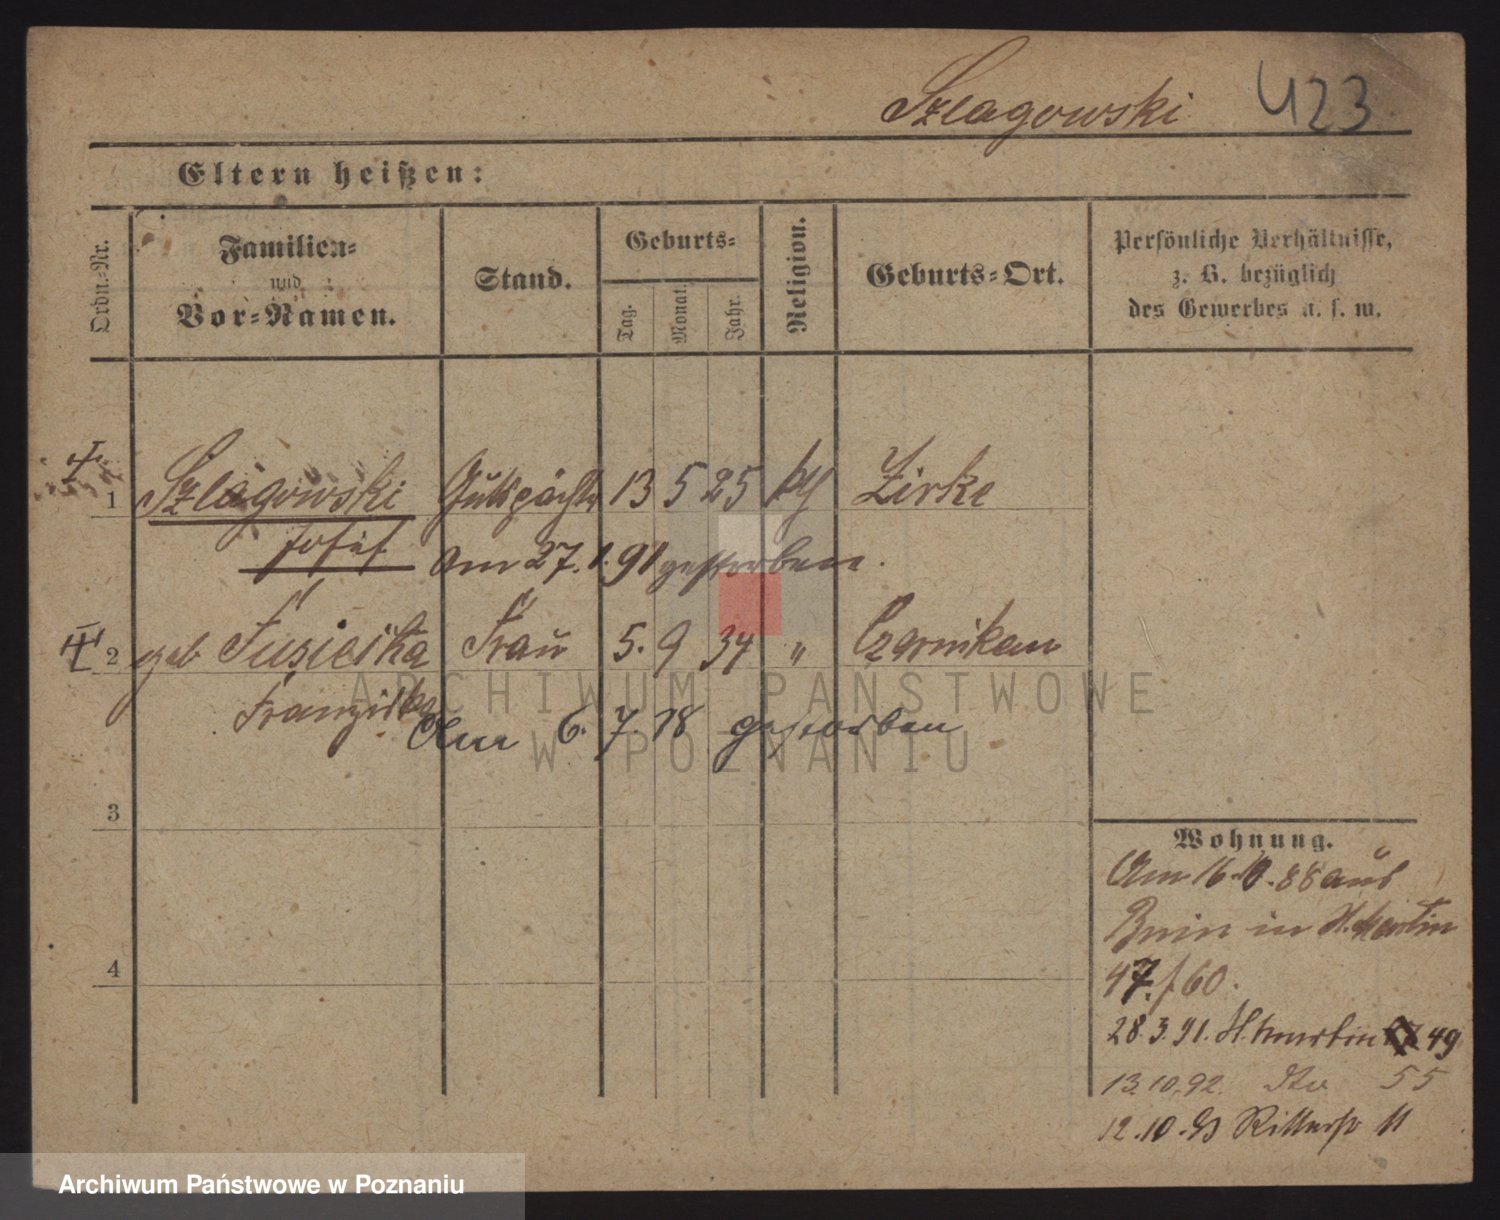 Szlagowski 423
Eltern heißen:
Ordn.-Nr.
Familien-
und
Vor-Namen.
Stand.
Geburts-
Tag.
Monat.
Jahr.
Religion.
Geburts-Ort.
Persönliche Verhältnisse,
z. B. bezüglich
des Gewerbes u. s. w.
1 Szlagowski Gutspächter 13 5 25 kth Zirke
Josef Am 27.1.91 gestorben.
2 geb Frau 5. 9 34 " Czarnikau
Franziska Am 6. 7. 18 gestorben
3
4
Wohnung.
Am 16.10.88 aus
Bnin in St. Martin
47. f 60.
28.3.91. St. Martin 49
13.10.92. dto 55
12.10.93 Ritterstr 11
ARCHIWUM PAŃSTWOWE
W POZNANIU
Archiwum Państwowe w Poznaniu